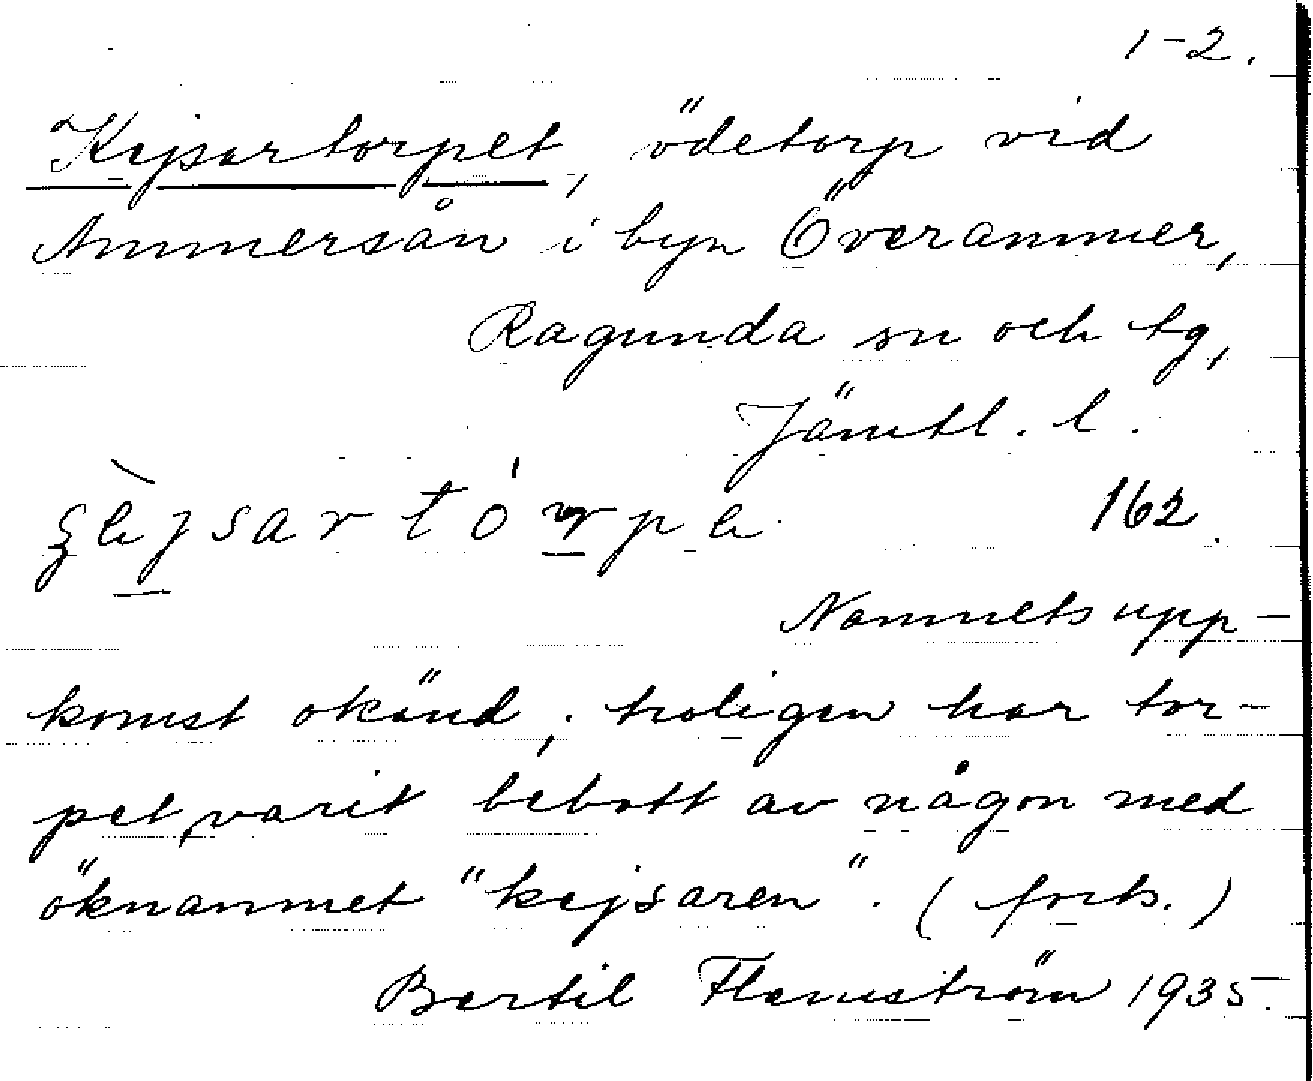 1-2.
Kejsartorpet, ödetorp vid
Ammersån i byn Överammer,
Ragunda sn och tg,
Jämtl. l.
162.
Namnets upp-
komst okänd; troligen har tor-
pet varit bebott av någon med
öknamnet "kejsaren". (forts.)
Bertil Flemström 1935.